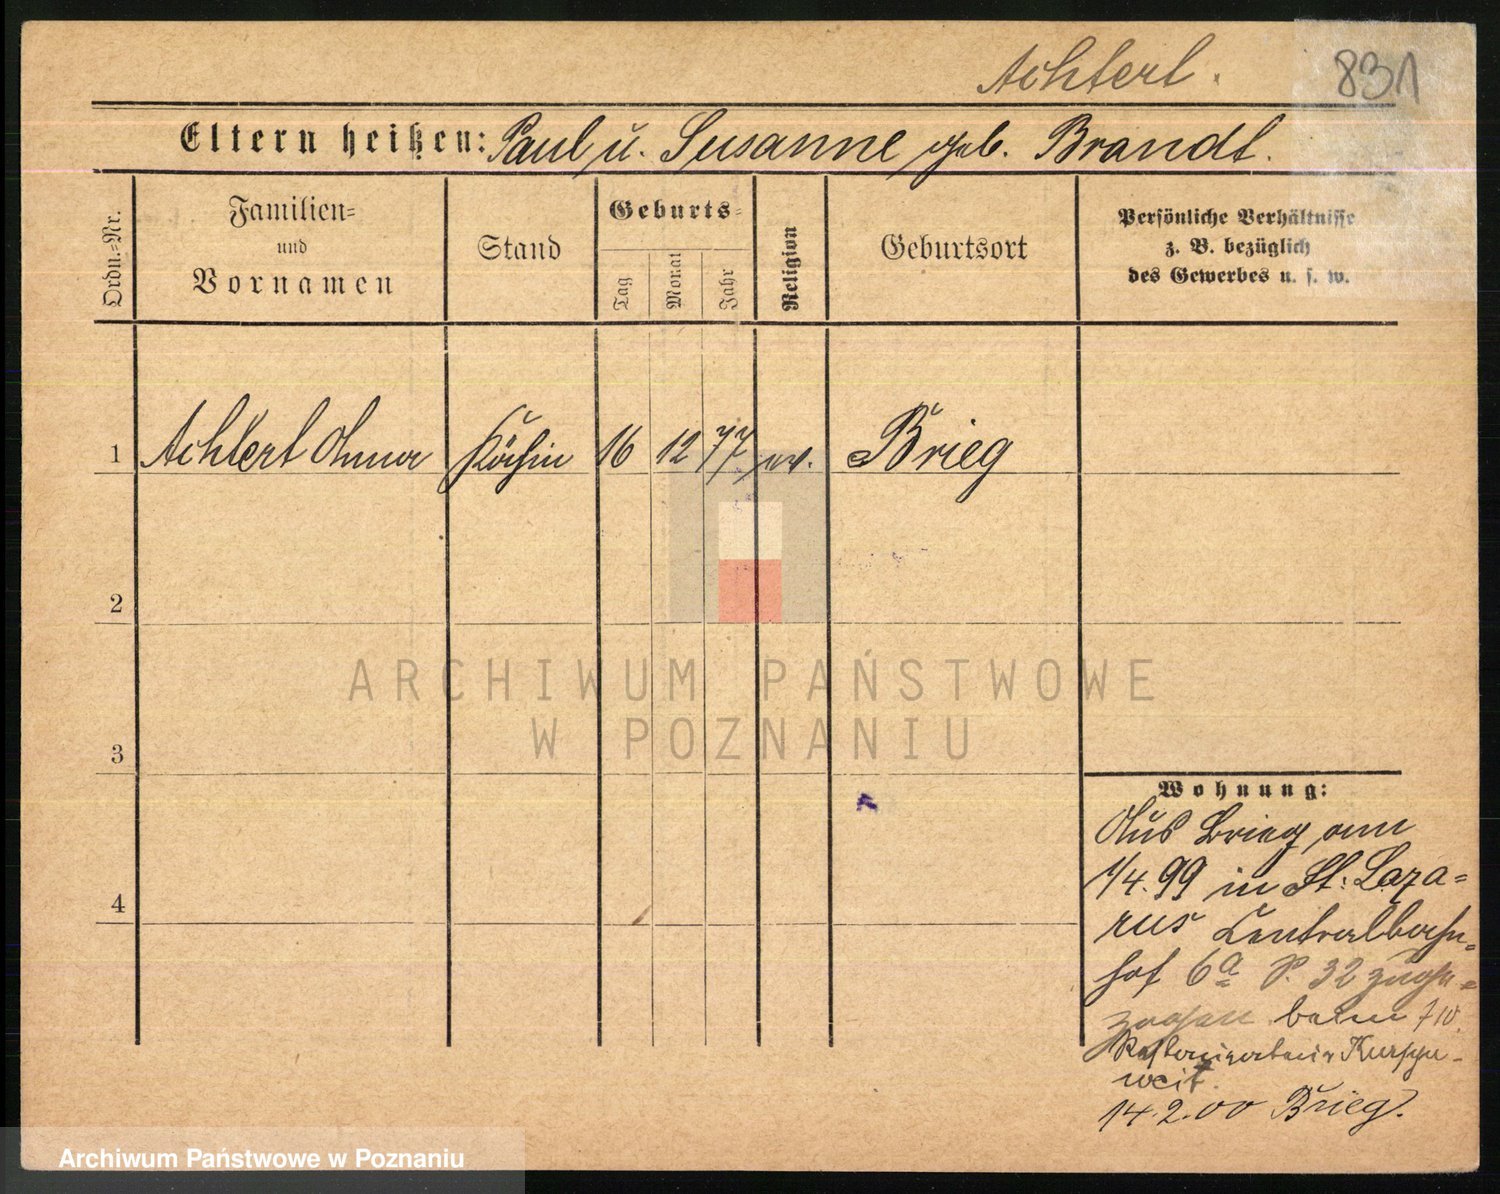 Achtert.
831
Eltern heißen: Paul u. Susanne geb. Brandt.
Ordn.=Nr.
Familien=
und
Vornamen
Stand
Geburts=
Tag
Monat
Jahr
Religion
Geburtsort
Persönliche Verhältnisse
z. B. bezüglich
des Gewerbes u. s. w.
1 Achtert Anna Köchin 16 12 77 ev. Brieg
2
3
4
ARCHIWUM PAŃSTWOWE
W POZNANIU
Wohnung:
Aus Brieg am
1/4.99 in St: Laza=
rus Centralbahn=
hof 6a P. 32 zuge=
zogen beim
weit.
14.2.00 Brieg.
Archiwum Państwowe w Poznaniu